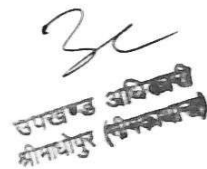 उपखण्ड अधिकारी
श्रीमाधोपुर